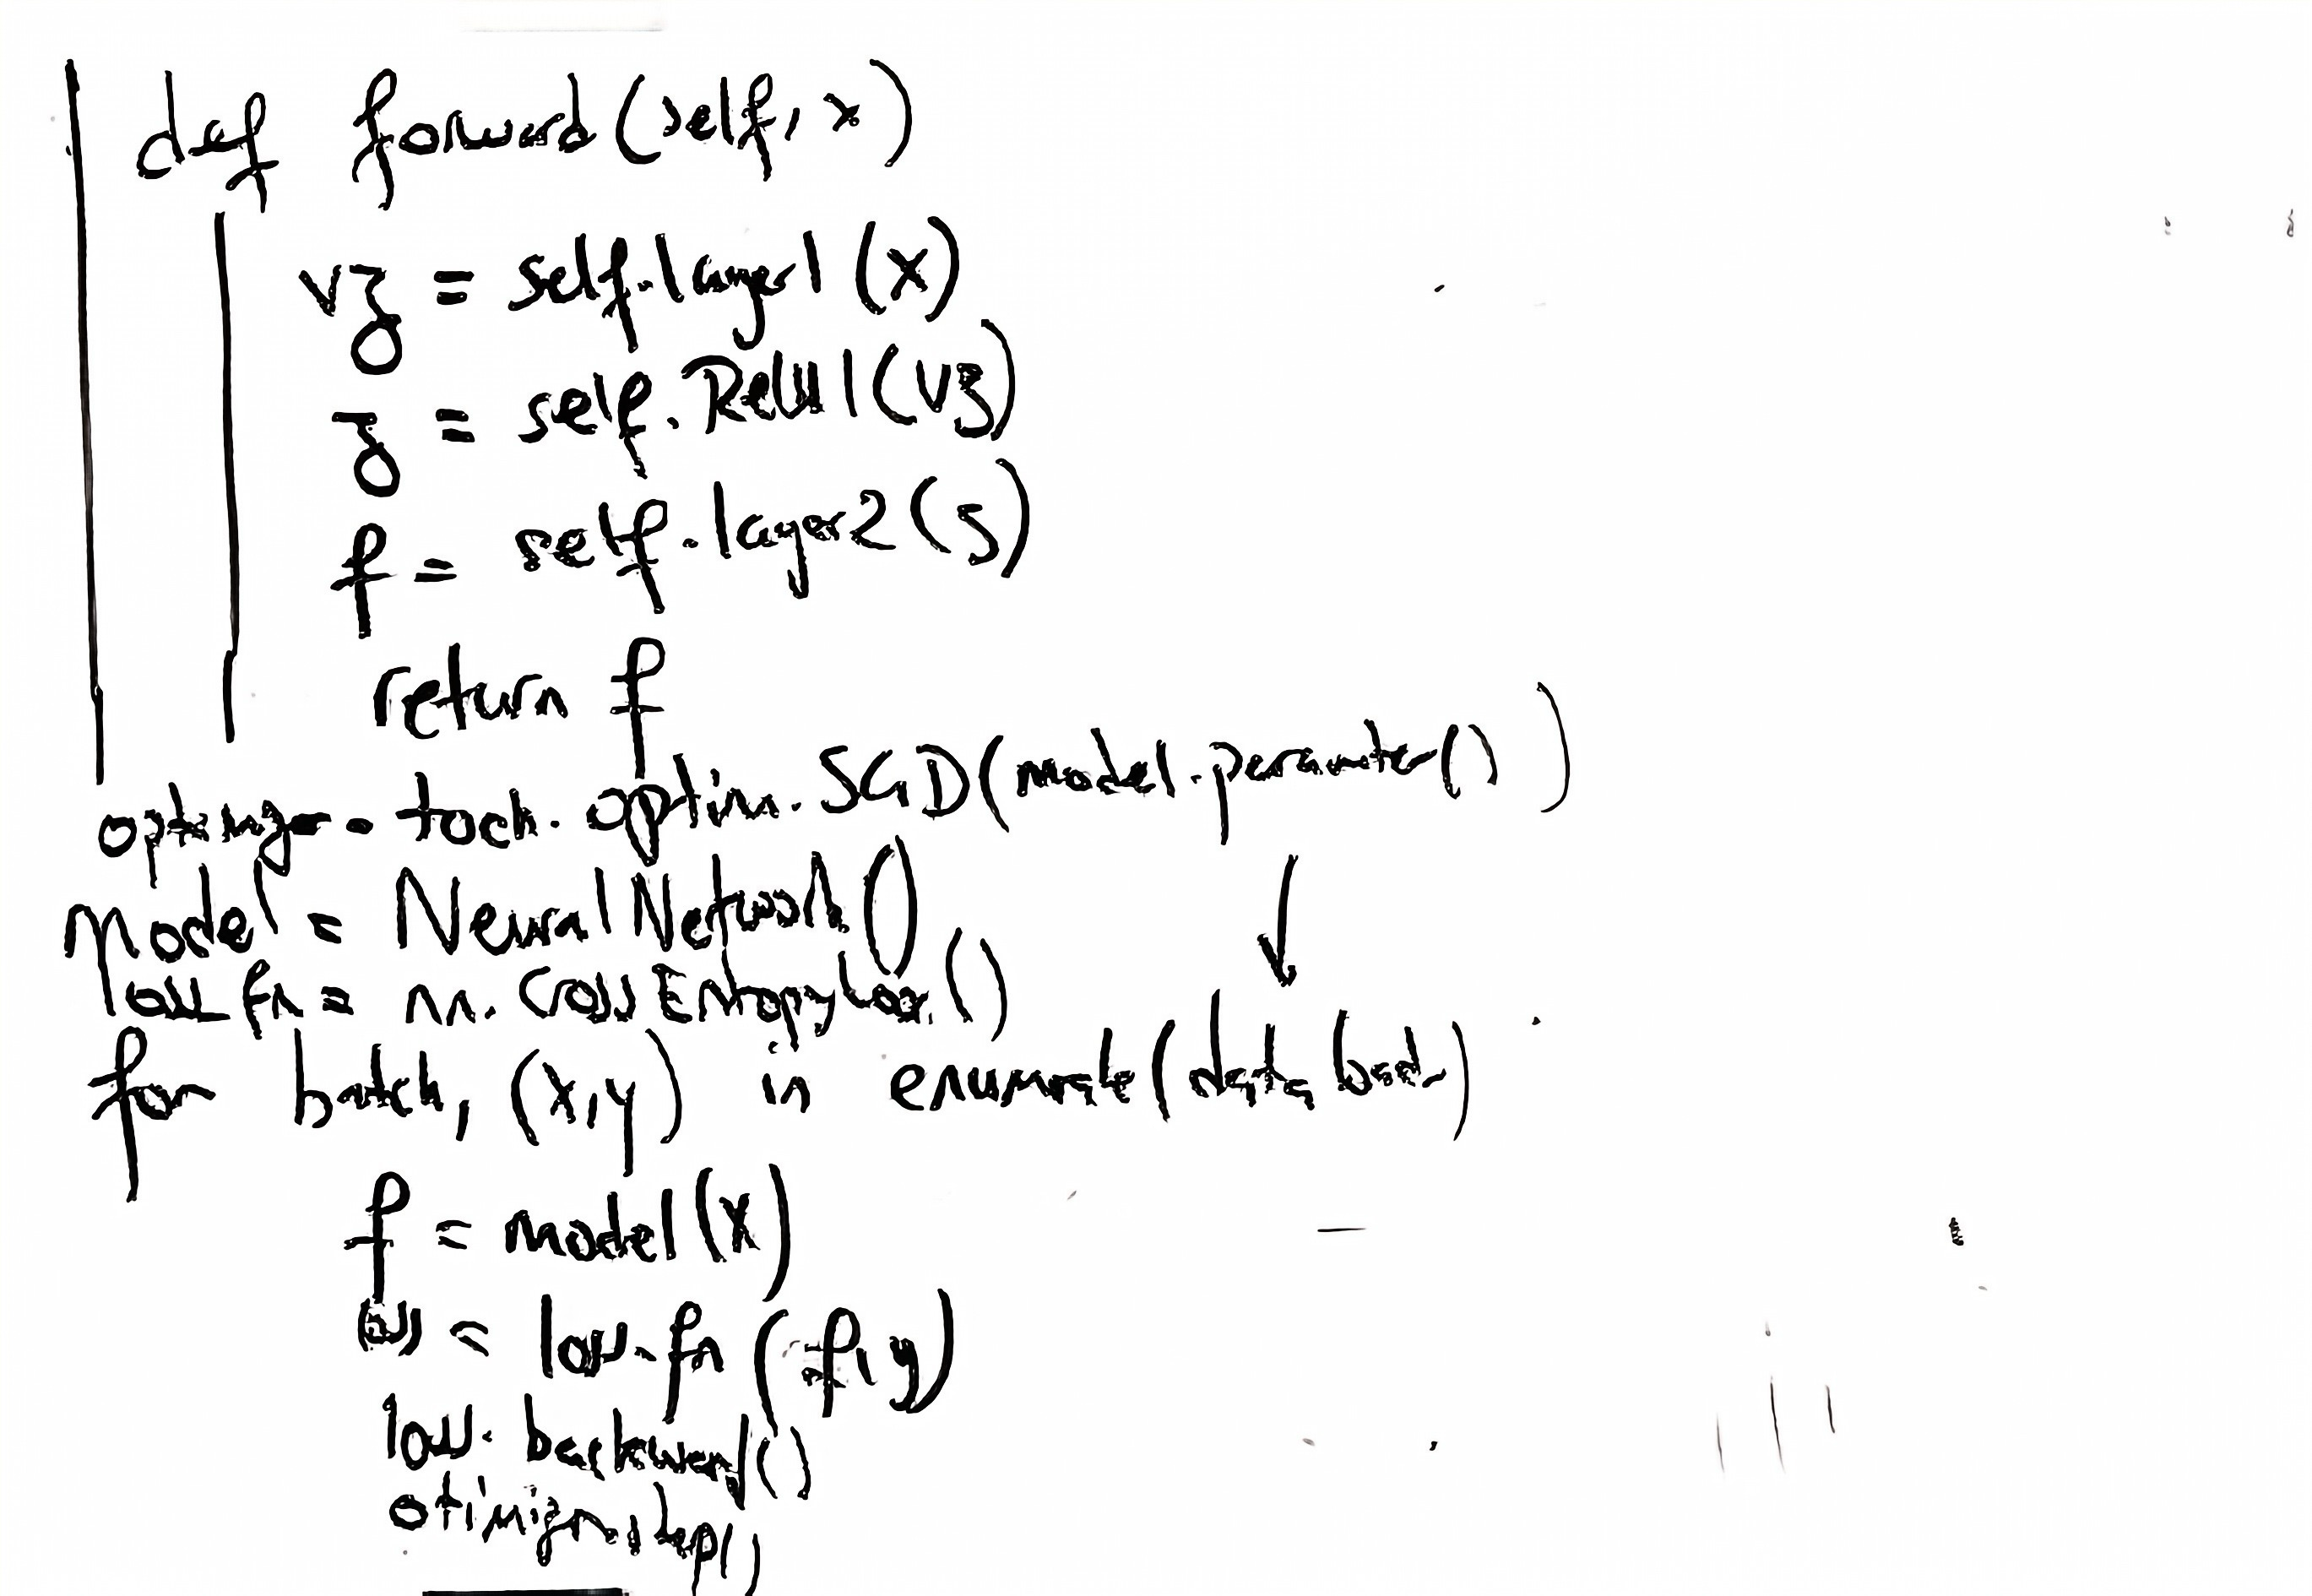 def forward(self, x)
vz = self.layer1 (x)
z = self.ReLU1(vz)
f = self.layer2 (z)
return f
= toch. optim. SGD(model.parameter())
model = NeuralNetwork ()
loss fn = nn. CrossEntropyLoss()
for batch, (x,y) in enumerate(data load
f = model (x)
loss = loss-fn (f,y)
loss. backward()
otimizer.step()